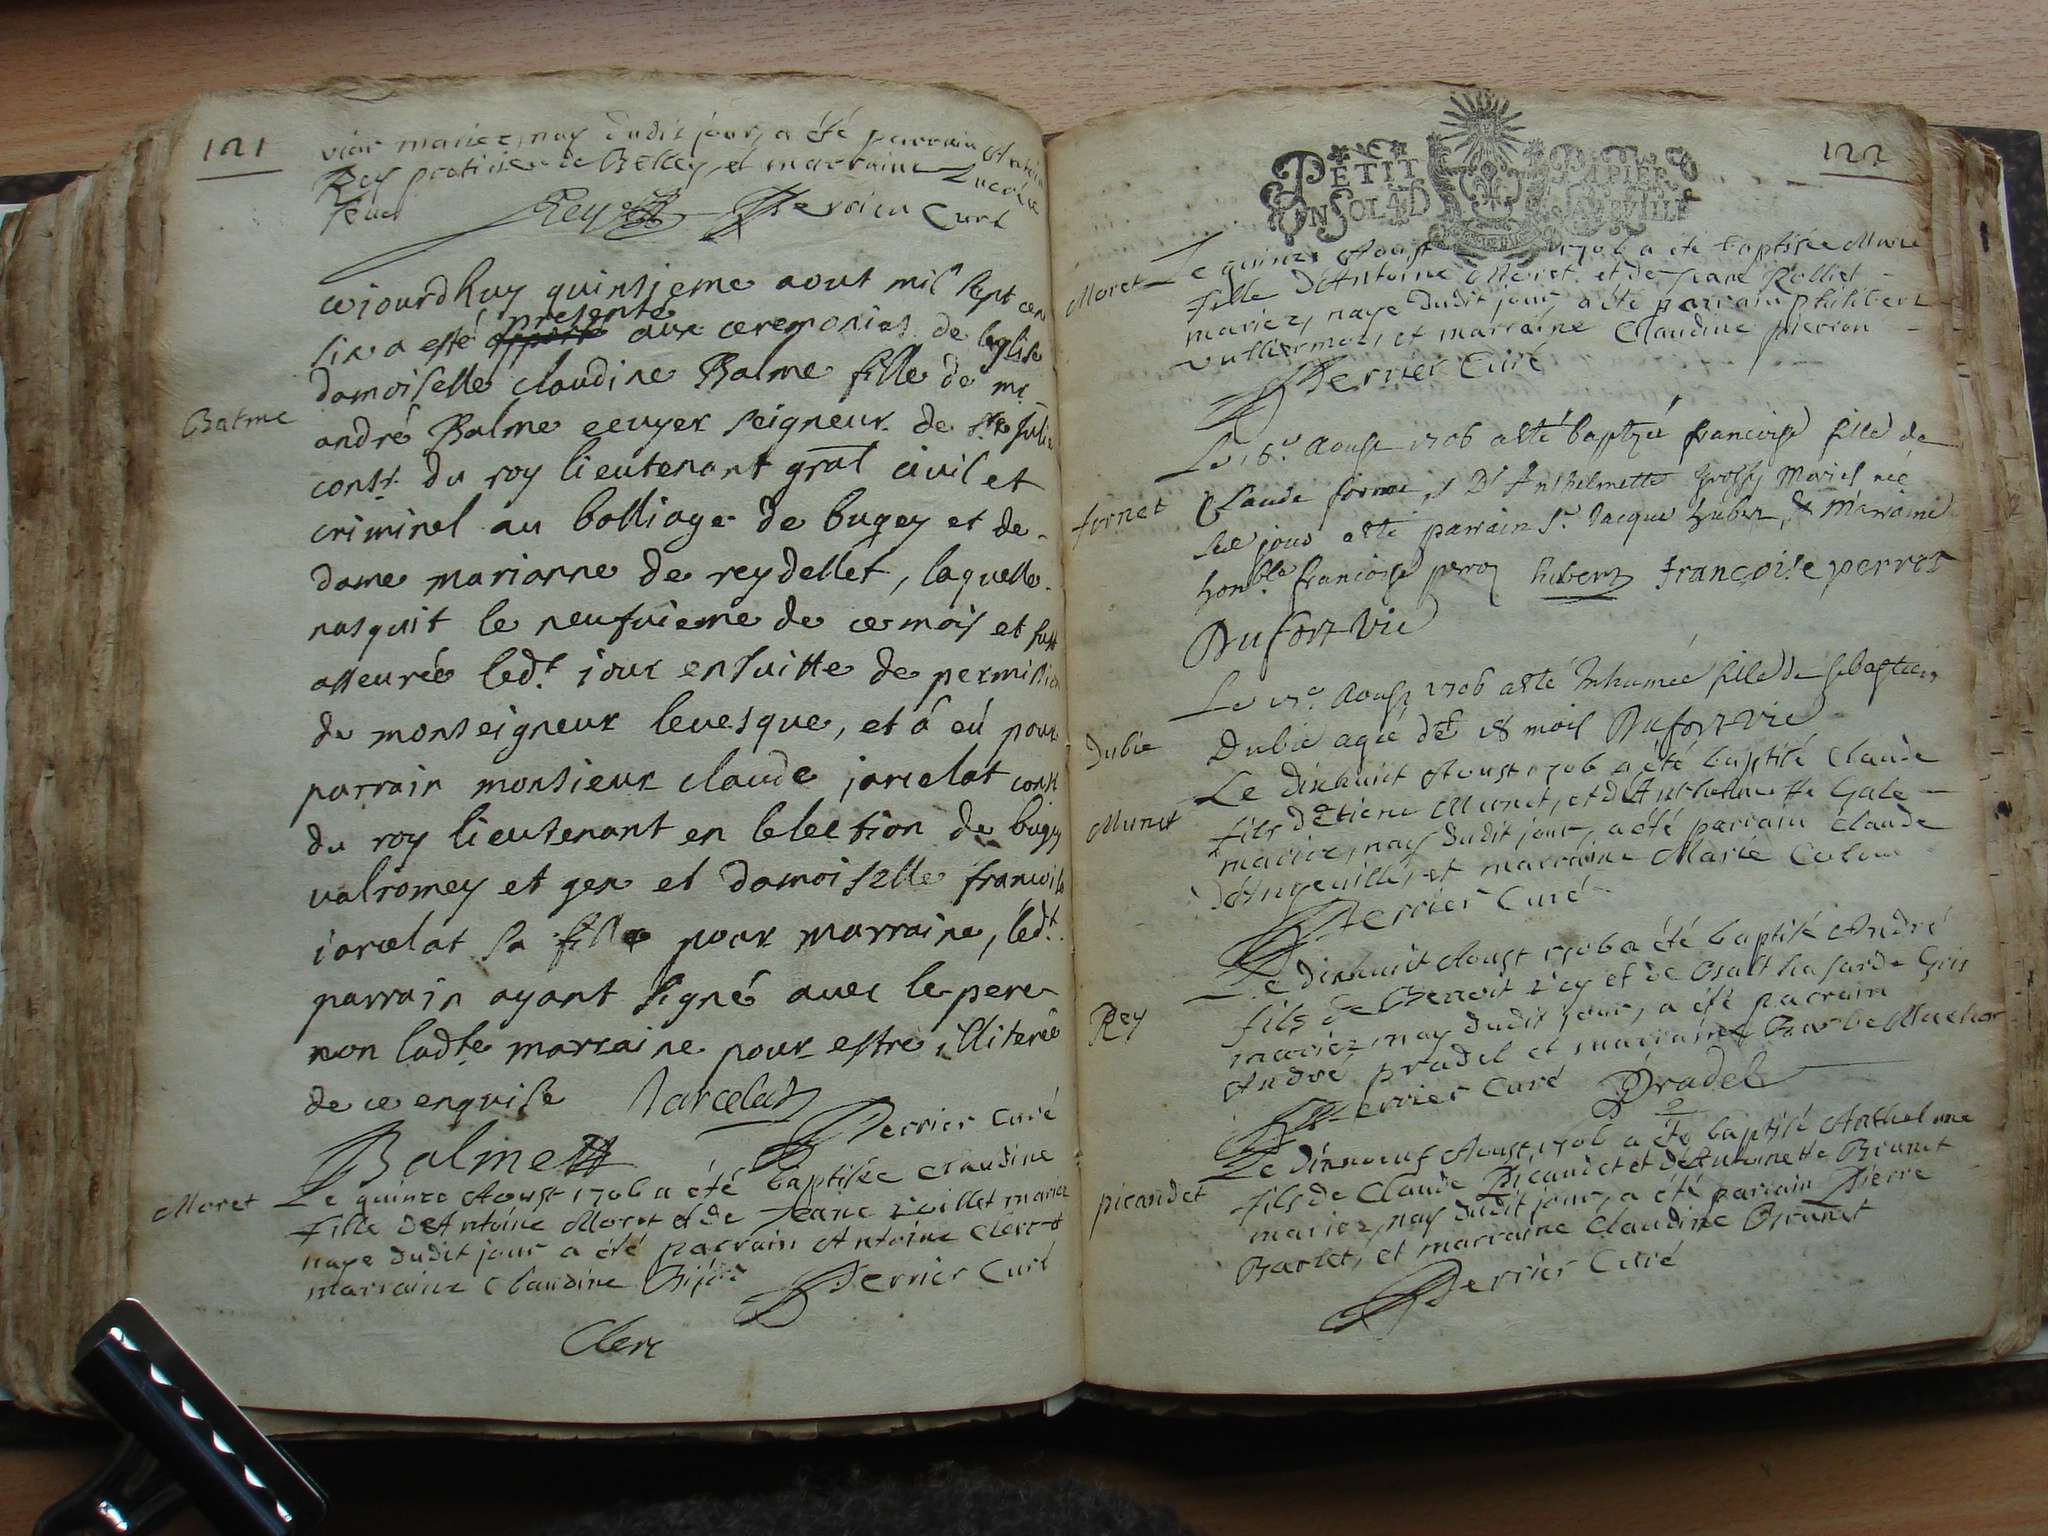 121
vier mariez, nay dudit jour, a été parrain
Rey praticien de Belley, et marraine
Rey Perrier Curé
cejourdhuy quinsieme aout mil sept cen
presenté
six a esté aux ceremonies de leglise
damoiselle claudine Balme fille de mr
Balme
andré Balme ecuyer seigneur de ste Julie
consr. du roy lieutenant gral civil et
criminel au balliage de bugey et de
dame marianne de reydellet, laquelle
nasquit le neufvieme de ce mois et fust
asseurée ledt. jour ensuitte de permission
de monseigneur levesque, et â eú pour
parrain monsieur claude jarcelat consr
du roy lieutenant en lelection de bugey
valromey et gex et damoiselle francoise
jarcelat sa fille pour marraine, ledt.
parrain ayant signé avec le pere
non ladte marraine pour estre illiterée
de ce enquise Jarcelat
Balme Perrier Curé
Moret
Le quinze Aoust 1706 a été baptisée Claudine
fille d'Antoine Moret et de Jeane mariez
naye dudit jour a été parrain Antoine Clerc et
marraine Claudine Perrier Curé
Clerc
122
PETIT PAPIER
UN SOL 4 D LA FEUILLE
Le quinze Aoust 1706 a été baptisée Marie
Moret
fille d'Antoine Moret et de Jeane Rolliet
mariez, naye dudit jour a été parrain philibert
vulliermoz, et marraine Claudine pierron
Perrier Curé
Le 16e. Aoust 1706 a esté baptizé francoise fille de
fornet
Claude fornet, & D'Anthelmette mariés née
led jour a esté parrain Sr. Jacque hubert, & Marraine
honble. francoise perroz hubert françoise perros
Dufort vic
Le 17e. Aoust 1706 a esté Inhumée fille de sebastien
Dubie
Dubie agée de 18 mois Dufort vic
Le dixhuit Aoust 1706 a été baptisé Claude
Munet
fils d'Etiene Munet, et d'Anthelmette Gale
mariez, nay dudit jour, a été parrain Claude
d'Angeville, et marraine Marie
Perrier Curé
Le dixhuit Aoust 1706 a été baptisé André
Rey
fils de Benoit Rey et de Balthasarde Gris
mariez, nay dudit jour, a été parrain
André pradel et marraine
Perrier Curé Pradel
Le dixneuf Aoust 1706 a été baptisé Anthelme
picandet
fils de Claude Picandet et d'Antoinette Brunet
mariez, nay dudit jour, a été parrain Pierre
Barlet, et marraine Claudine Brunet
Perrier Curé